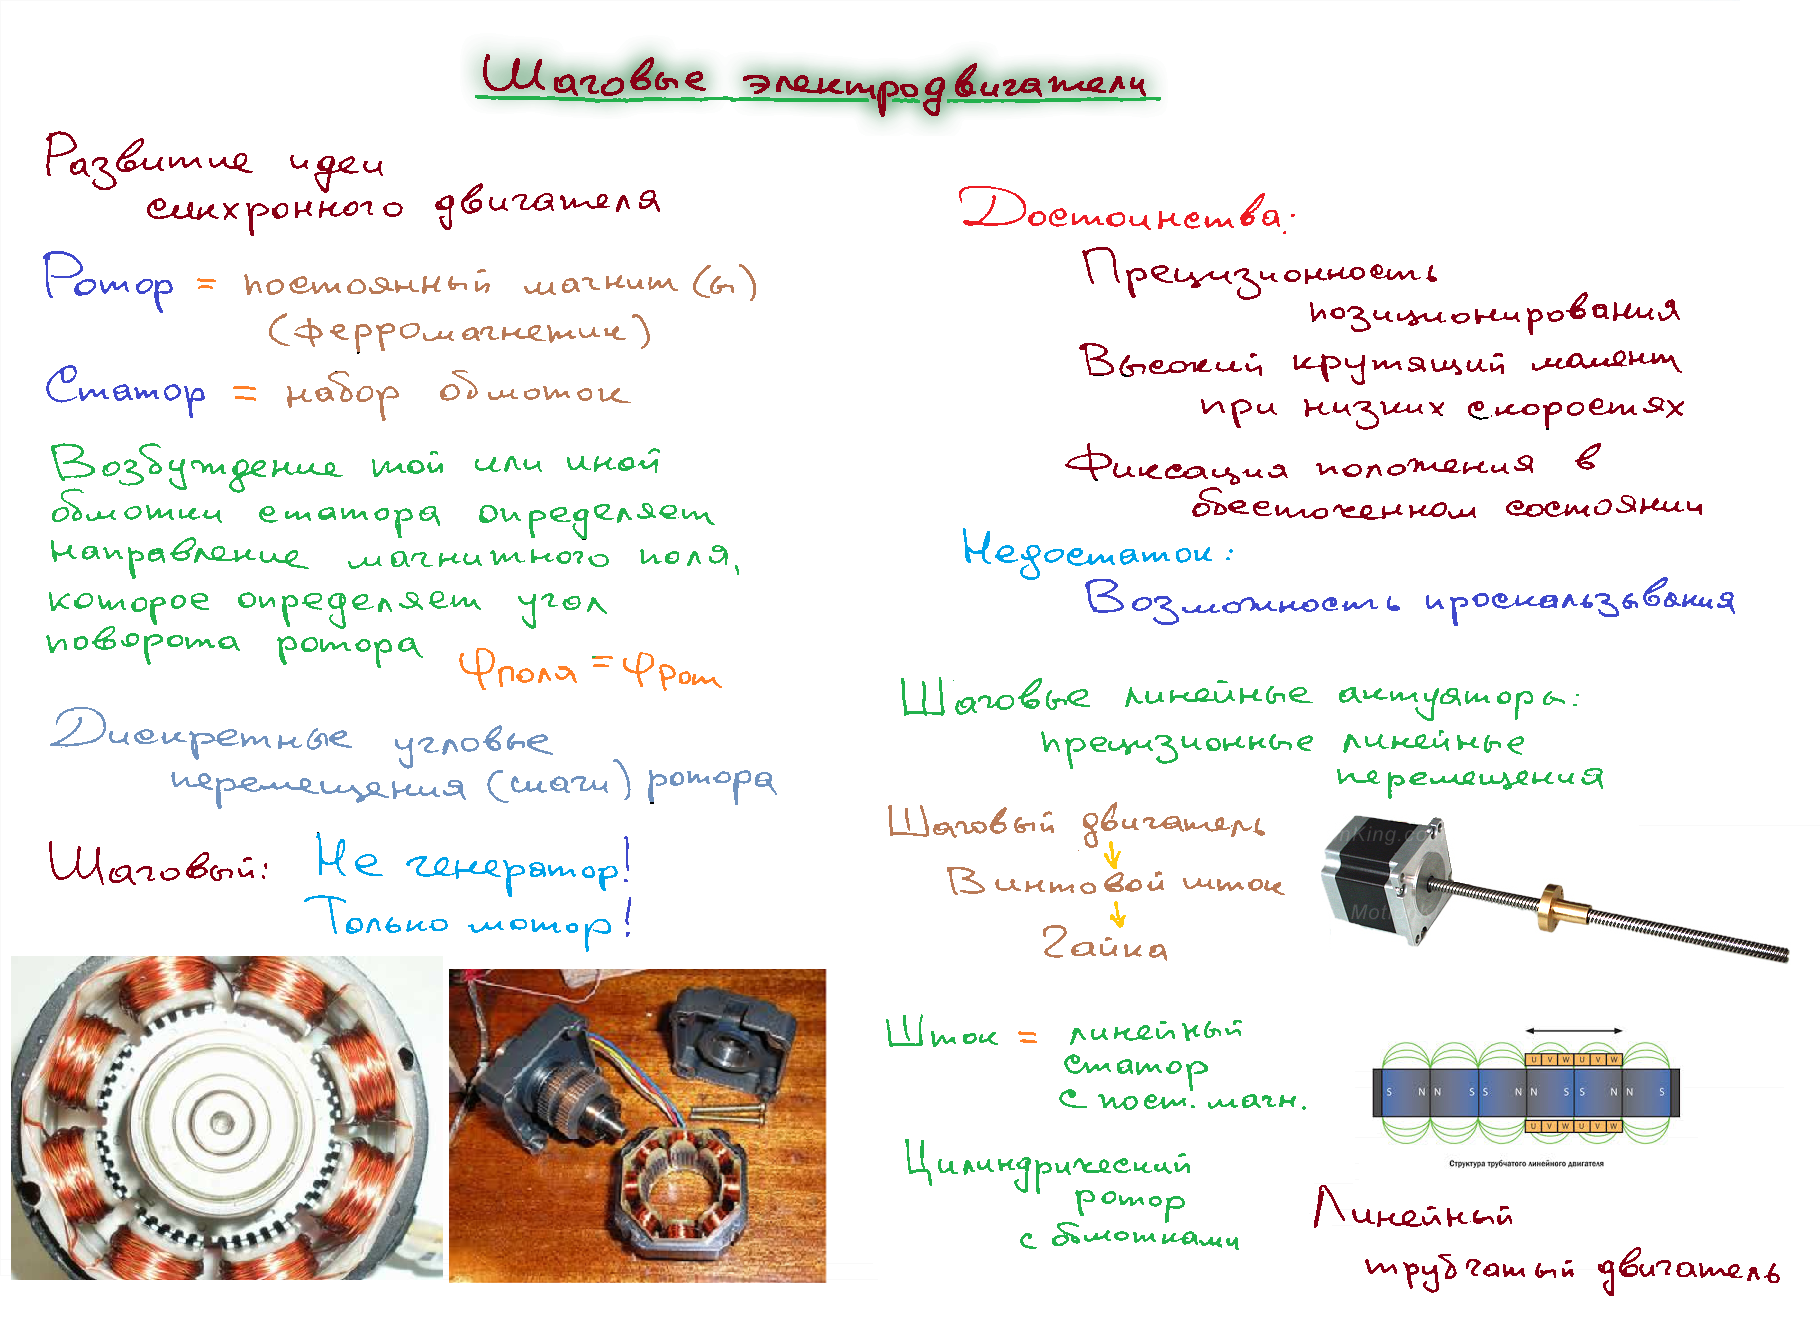 Шаговые электродвигатели
Развитие идеи
синхронного двигателя
Ротор = постоянный магнит (ы)
(ферромагнетик)
Статор = набор обмоток
Возбуждение той или иной
обмотки статора определяет
направление магнитного поля,
которое определяет угол
поворота ротора
φполя = φрот
Дискретные угловые
перемещения (шаги) ротора
Шаговый: Не генератор!
Только мотор!
Достоинства:
Прецизионность
позиционирования
Высокий крутящий момент
при низких скоростях
Фиксация положения в
обесточенном состоянии
Недостаток:
Возможность проскальзывания
Шаговые линейные актуаторы:
прецизионные линейные
перемещения
Шаговый двигатель
Винтовой шток
Гайка
nKing.co
Moti
Шток = линейный
статор
с пост. магн.
Цилиндрический
ротор
с обмотками
U V W U V W
S N N S S N N S S N N S
U V W U V W
Структура трубчатого линейного двигателя
Линейный
трубчатый двигатель